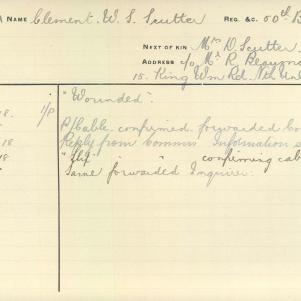 NAME Clement. W. S. Scutter REG. &C. 50th B
NEXT OF KIN Mrs D. Scutter.
ADDRESS c/o Mr R. Beaumo
15. King Wm Rd. Nth Unl
"Wounded".
8. 1/P P/Cable. confirmed. forwarded Co
18 Reply from Commn. Information s
18 " " confirming cab
Same forwarded Inquirer.